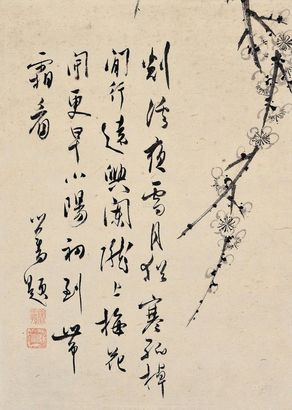 剡溪夜雪月猶寒孤棹
閒行遠興闌隴上梅花
開更早小陽初到帶
霜看
心畬題